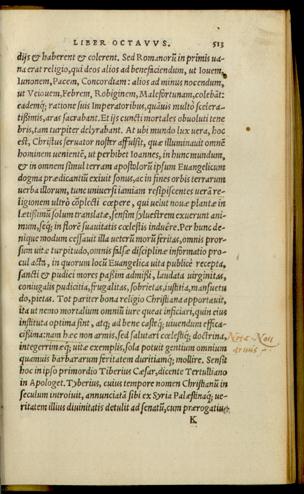 LIBER OCTAVVS. 513
dijs & haberent & colerent. Sed Romanorũ in primis ua-
na erat religio, qui deos alios ad beneficiendum, ut Iouem,
Iunonem, Pacem, Concordiam: alios ad minus nocendum,
ut Veiouem, Febrem, Robiginem, Malefortunam, colebãt:
eademq; ratione suis Imperatoribus, quãuis multò scelera-
tißimis, aras sacrabant. Et ijs cuncti mortales obuoluti tene
bris, tam turpiter delyrabant. At ubi mundo lux uera, hoc
est, Christus seruator noster affulsit, quæ illuminauit omnẽ
hominem uenientẽ, ut perhibet Ioannes, in hunc mundum,
& in omnem simul terram apostolorũ ipsum Euangelicum
dogma prædicantiũ exiuit sonus, ac in fines orbis terrarum
uerba illorum, tunc uniuersi iamiam resipiscentes uerã re-
ligionem ultrò cõplecti cœpere, qui uelut nouæ plantæ in
lætißimũ solum translatæ, sensim syluestrem exuerunt ani-
mum, seq; in florẽ suauitatis cœlestis induêre. Per hunc de-
nique modum cessauit illa ueterũ morũ feritas, omnis pror-
sum uitæ turpitudo, omnis falsæ disciplinæ informatio pro-
cul acta, in quorum locũ Euangelica uita publicè recepta,
sancti & pudici mores paßim admißi, laudata uirginitas,
coniugalis pudicitia, frugalitas, sobrietas, iustitia, mansuetu
do, pietas. Tot pariter bona religio Christiana apportauit,
ita ut nemo mortalium omniũ iure queat inficiari, quin eius
instituta optima sint, atq; ad bene castéq; uiuendum effica-
cißima: nam hæc non armis, sed salutari cœlestiq; doctrina,
integerrimæq; uitæ exemplis, sola potuit gentium omnium
quamuis barbararum feritatem duritiamq; mollire. Sensit
hoc in ipso primordio Tiberius Cæsar, dicente Tertulliano
in Apologet. Tyberius, cuius tempore nomen Christianũ in
seculum introiuit, annunciatã sibi ex Syria Palæstinaq; ue-
ritatem illius diuinitatis detulit ad senatũ, cum prærogatiua
K